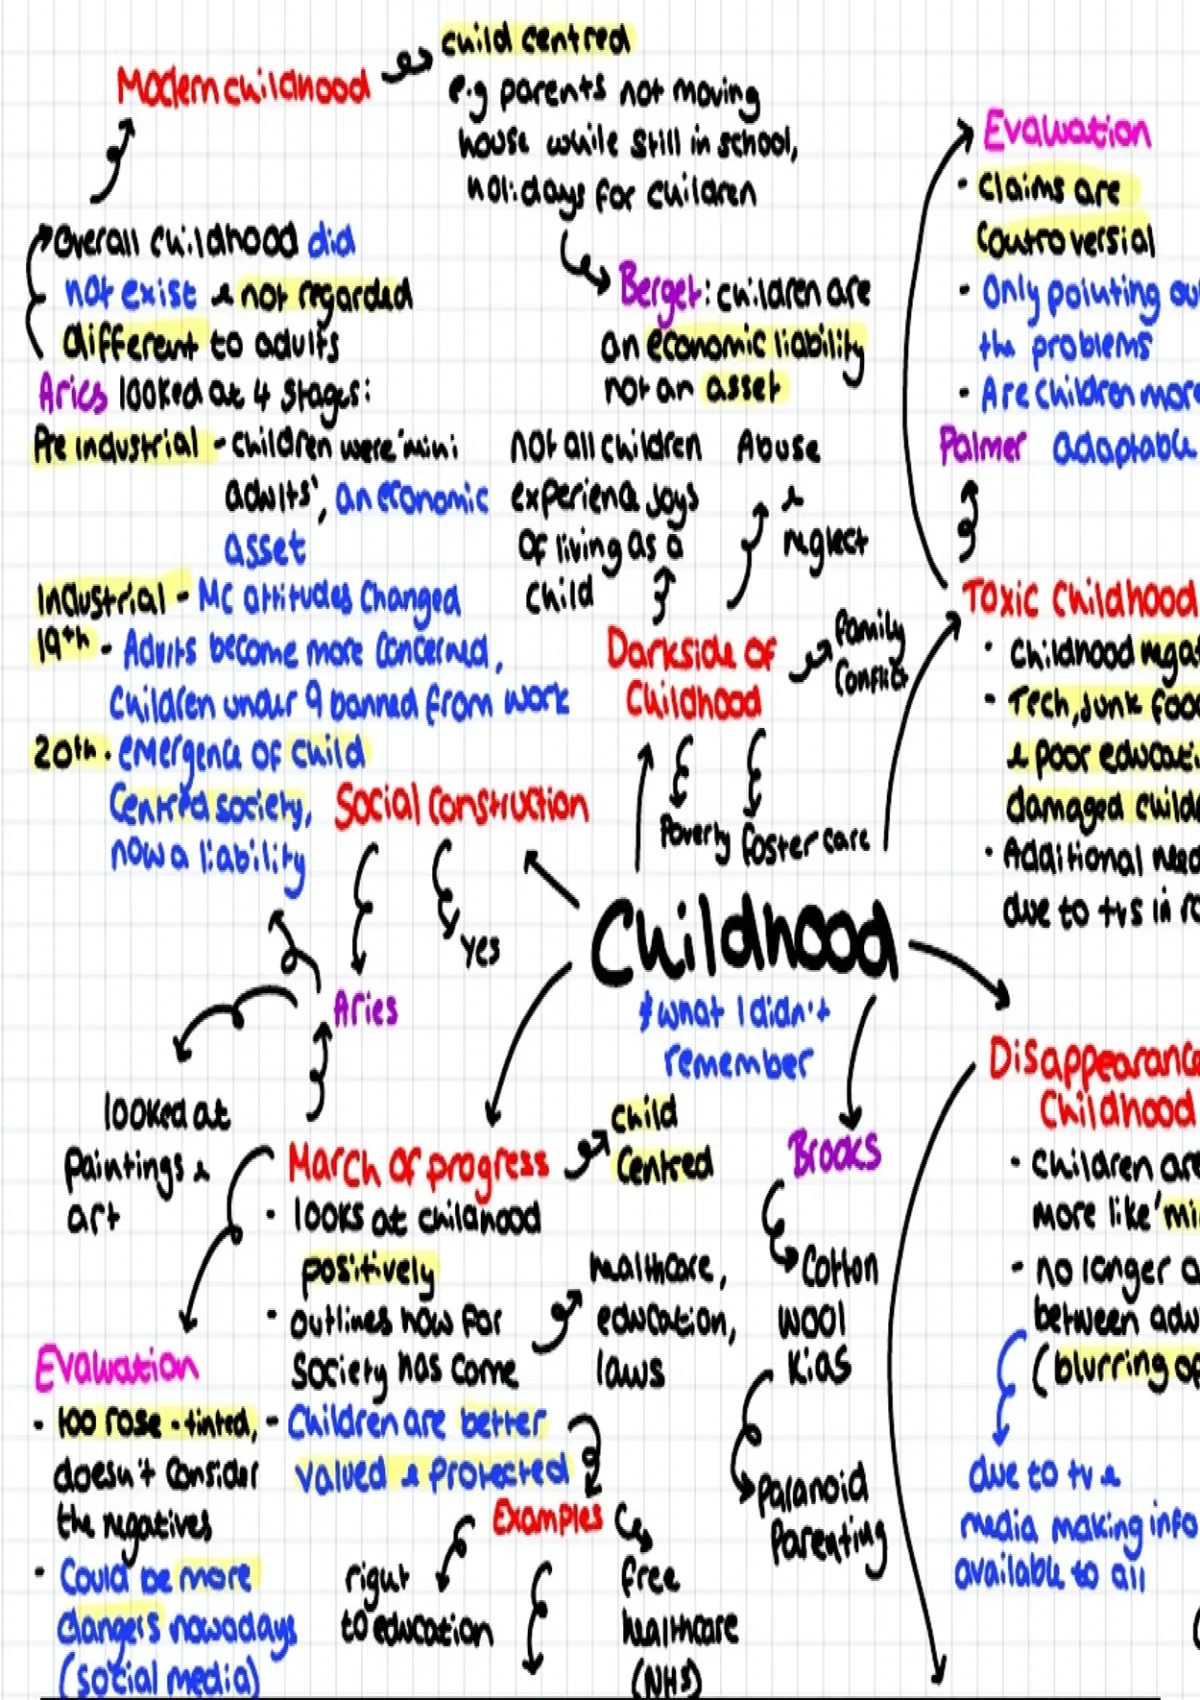 child centred
Modern childhood
e.g parents not moving
house while still in school,
holidays for children
Overall childhood did
not exist & not regarded
different to adults
Aries looked at 4 stages:
Pre industrial - children were 'mini
adults', an economic
asset
Industrial - MC attitudes changed
19th - Adults become more concerned,
children under 9 banned from work
20th - emergence of child
centred society,
now a liability
Berget: children are
an economic liability
not an asset
not all children
experience joys
of living as a
child
Abuse
&
neglect
Darkside of
Childhood
family
conflict
Poverty
foster care
Evaluation
- claims are
controversial
- Only pointing
the problems
- Are children more
adaptable
Palmer
Toxic Childhood
- Childhood
- Tech, junk
& poor
damaged
- Additional
due to tvs in
Social construction
yes
Aries
looked at
paintings &
art
Childhood
* what I didn't
remember
March of progress
- looks at childhood
positively
- outlines how far
society has come
- Children are better
valued & protected
child
centred
healthcare,
education,
laws
Examples
right
to education
free
healthcare
(NHS)
Evaluation
- too rose-tinted,
doesn't consider
the negatives
- Could be more
dangers nowadays
(social media)
Brooks
Cotton
wool
kids
paranoid
parenting
Disappearance
Childhood
- children are
more like
- no longer
between
(blurring of
due to tv &
media making info
available to all